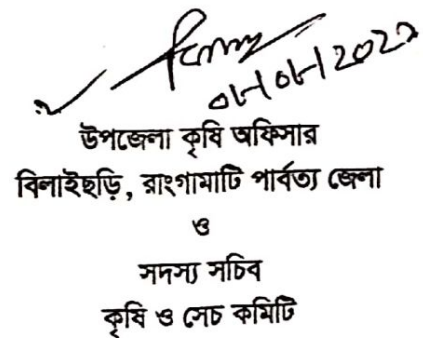 উপজেলা কৃষি অফিসার
বিলাইছড়ি, রাংগামাটি পার্বত্য জেলা
ও
সদস্য সচিব
কৃষি ও সেচ কমিটি